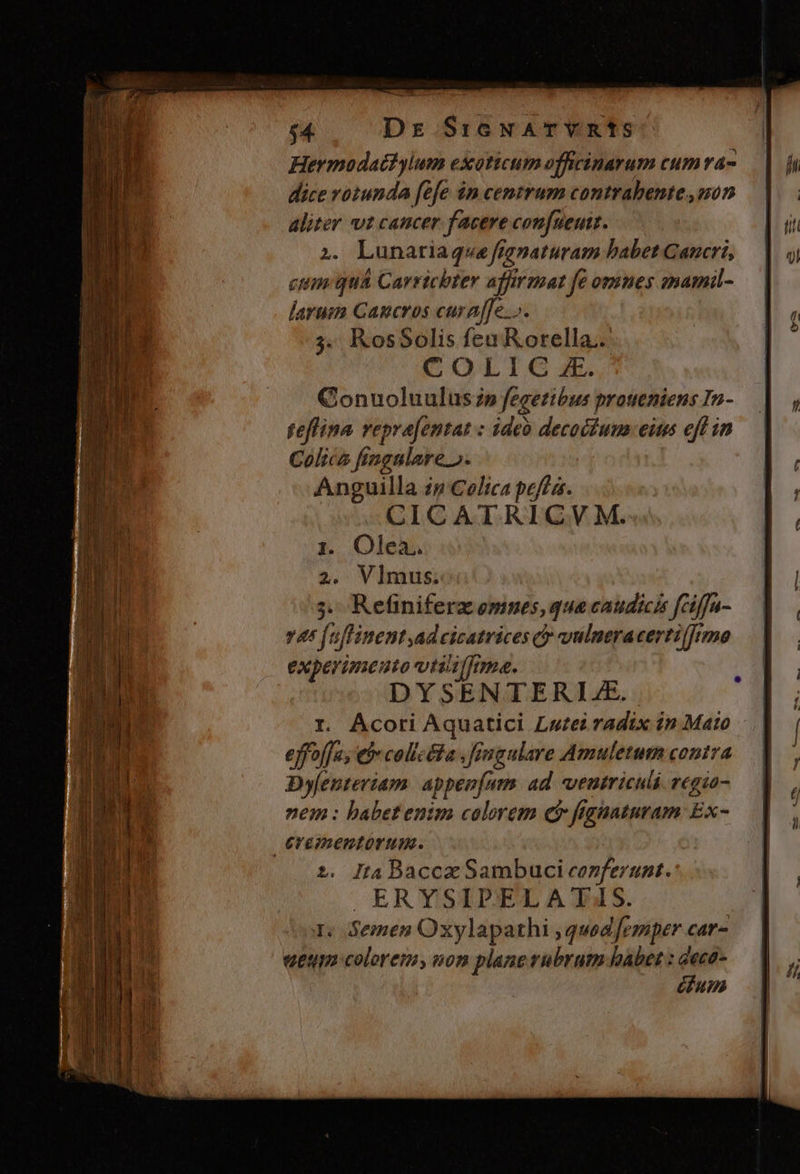 54 De Signatvris
Hermodactylum exoticum officinarum cum ra-
dice rotunda ſeſe in centrum contrahente, non
aliter vt cancer facere conſueuit.
2. Lunaria quæ ſignaturam habet Cancri,
cum quâ Carrichter affirmat ſe omnes mamil-
larum Cancros curaſſe.
3. Ros Solis ſeu Rorella.
COLICÆ.
Conuoluulus in ſegetibus proueniens In-
teſtina repræſentat : ideò decoctum eius eſt in
Colica ſingulare.
Anguilla in Colica peſtis.
CICATRICVM.
1. Olea.
2. Vlmus.
3. Reſiniferæ omnes, quæ caudicis ſciſſu-
ras ſuſtinent, ad cicatrices & vulnera certiſſimo
experimento vtiliſſimæ.
DYSENTERIÆ.
1. Acori Aquatici Lutei radix in Maio
effoſſa, & collecta, ſingulare Amuletum contra
Dyſenteriam appenſum ad ventriculi regio-
nem : habet enim colorem & ſignaturam Ex-
crementorum.
2. Ita Baccæ Sambuci conferunt.
ERYSIPELATIS.
1. Semen Oxylapathi, quod ſemper car-
neum colorem, non planè rubrum habet : deco-
ctum